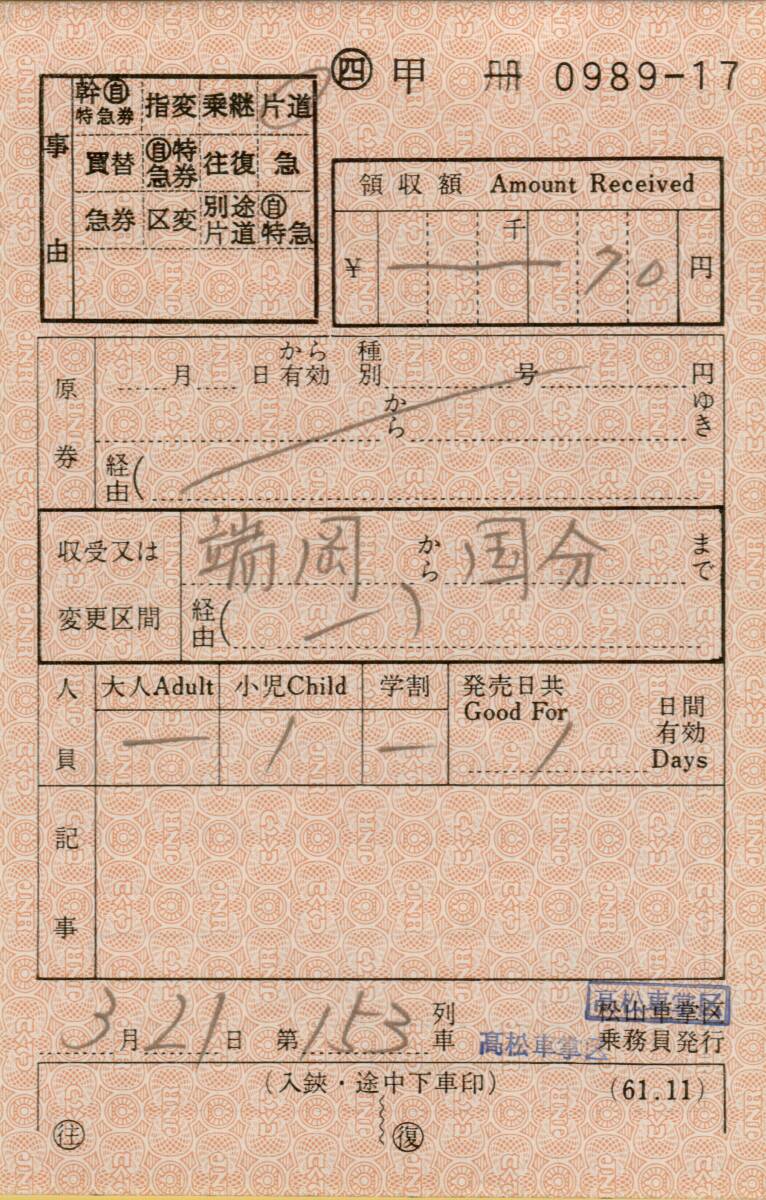 ㊃ 甲 冊 0989-17
事由
幹㊂特急券 指変 乗継 片道
買替 ㊂特急券 往復 急
急券 区変 別途片道 ㊂特急
領収額 Amount Received
千
¥ 70 円
原券
月 日から有効 種別 号 円
から ゆき
経由(
収受又は変更区間
端岡 から 国分 まで
経由( ー )
人員
大人Adult 小児Child 学割 発売日共 Good For 日間有効 Days
ー 1 ー 1
記事
3月21日 第153列車
高松車掌区
松山車掌区
高松車掌区
乗務員発行
(入鋏・途中下車印) (61.11)
往 復